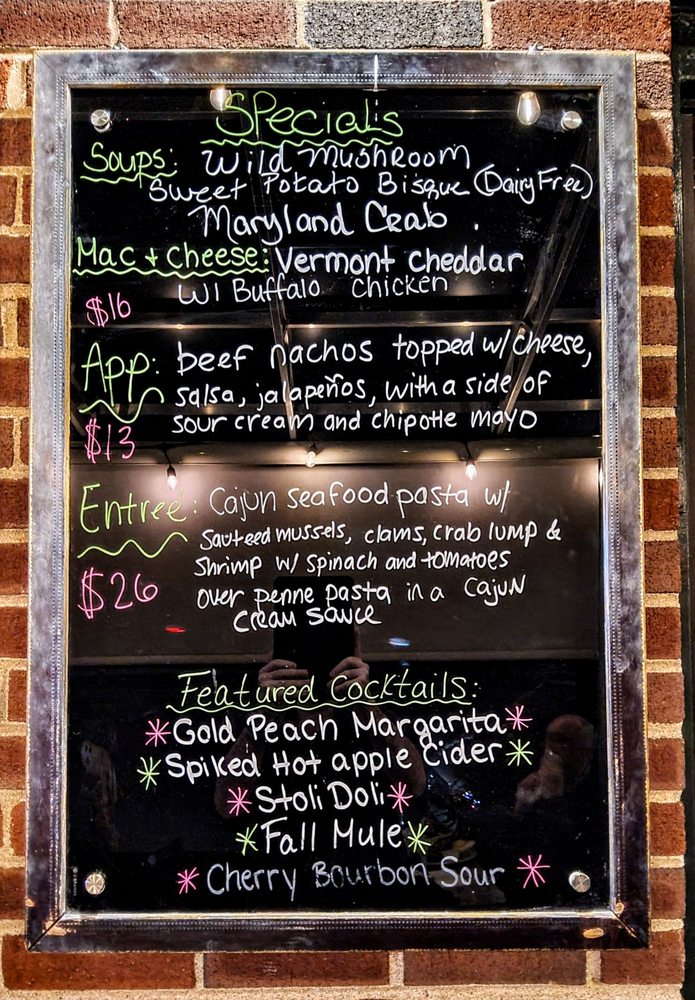 Specials
Soups: Wild Mushroom
Sweet Potato Bisque (Dairy Free)
Maryland Crab .
Mac + Cheese: Vermont Cheddar
W/ Buffalo Chicken
$16
App: beef nachos topped w/ cheese,
salsa, jalapeños, with a side of
sour cream and chipotle mayo
$13
Entree: Cajun seafood pasta w/
Sauteed mussels, clams, crab lump &
Shrimp w/ spinach and tomatoes
$26
over penne pasta in a Cajun
cream sauce
Featured Cocktails:
*Gold Peach Margarita*
*Spiked Hot apple Cider*
*Stoli Doli*
*Fall Mule*
*Cherry Bourbon Sour*